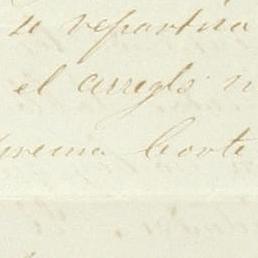 se repartira
el arreglo
prema Corte